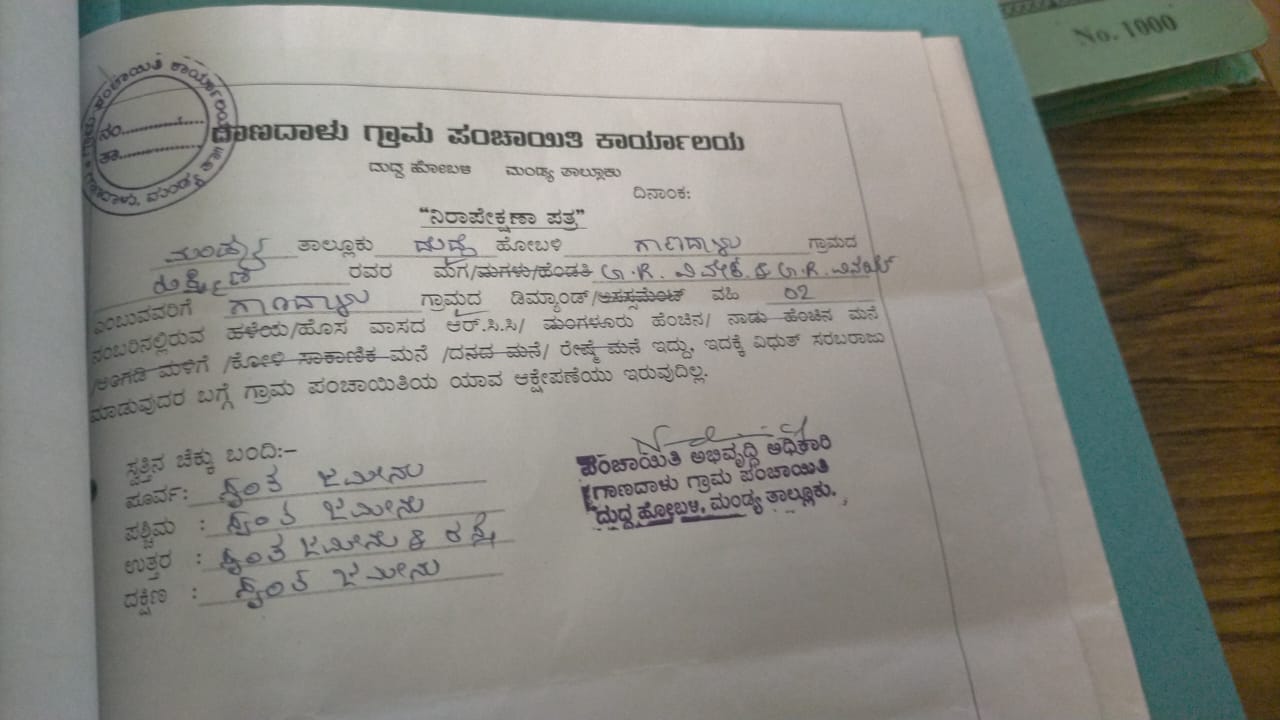 No. 1000
ಪಂಚಾಯಿತಿ ಕಾರ್ಯಾಲಯ
ನಂ...............
ತಾ...............
ಗಾಣದಾಳು ಗ್ರಾಮ ಪಂಚಾಯಿತಿ ಕಾರ್ಯಾಲಯ
ದುದ್ದ ಹೋಬಳಿ ಮಂಡ್ಯ ತಾಲ್ಲೂಕು
ದಿನಾಂಕ:
"ನಿರಾಪೇಕ್ಷಣಾ ಪತ್ರ"
ಮಂಡ್ಯ ತಾಲ್ಲೂಕು ದುದ್ದ ಹೋಬಳಿ ಗಾಣದಾಳು ಗ್ರಾಮದ
ರವರ ಮಗ/ಮಗಳು/ಹೆಂಡತಿ G.R. ವಿವೇಕ್ & G.R. ವಿನಯ್
ಎಂಬುವವರಿಗೆ ಗಾಣದಾಳು ಗ್ರಾಮದ ಡಿಮ್ಯಾಂಡ್/ಅಸೆಸ್ಸಮೆಂಟ್ ವಹಿ 02
ನಂಬರಿನಲ್ಲಿರುವ ಹಳೆಯ/ಹೊಸ ವಾಸದ ಆರ್.ಸಿ.ಸಿ/ ಮಂಗಳೂರು ಹೆಂಚಿನ/ ನಾಡು ಹೆಂಚಿನ ಮನೆ
/ಅಂಗಡಿ ಮಳಿಗೆ /ಕೋಳಿ ಸಾಕಾಣಿಕೆ ಮನೆ /ದನದ ಮನೆ/ ರೇಷ್ಮೆ ಮನೆ ಇದ್ದು, ಇದಕ್ಕೆ ವಿಧುತ್ ಸರಬರಾಜು
ಮಾಡುವುದರ ಬಗ್ಗೆ ಗ್ರಾಮ ಪಂಚಾಯಿತಿಯ ಯಾವ ಆಕ್ಷೇಪಣೆಯು ಇರುವುದಿಲ್ಲ.
ಸ್ವತ್ತಿನ ಚೆಕ್ಕು ಬಂದಿ:-
ಪೂರ್ವ: ಸ್ವಂತ ಜಮೀನು
ಪಶ್ಚಿಮ : ಸ್ವಂತ ಜಮೀನು
ಉತ್ತರ : ಸ್ವಂತ ಜಮೀನು & ರಸ್ತೆ
ದಕ್ಷಿಣ : ಸ್ವಂತ ಜಮೀನು
ಪಂಚಾಯಿತಿ ಅಭಿವೃದ್ಧಿ ಅಧಿಕಾರಿ
ಗಾಣದಾಳು ಗ್ರಾಮ ಪಂಚಾಯಿತಿ
ದುದ್ದ ಹೋಬಳಿ, ಮಂಡ್ಯ ತಾಲ್ಲೂಕು.